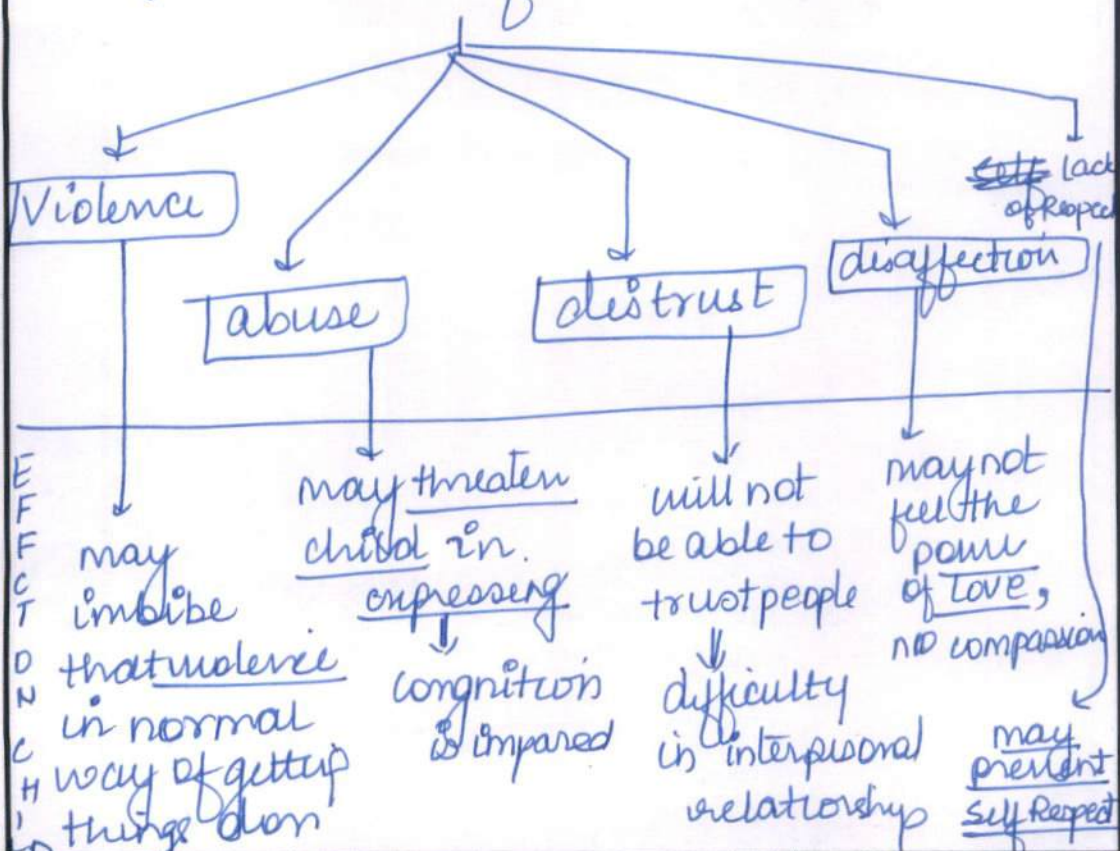 Violence
abuse
distrust
disaffection
lack
of Respect
EFFECT ON CHILD
may
imbibe
that violence
in normal
way of getting
things don
may threaten
child in.
expressing
congnition
is impared
will not
be able to
trust people
difficulty
in interpersonal
relationship
may not
feel the
power
of Love,
no compassion
may
prevent
self Respect